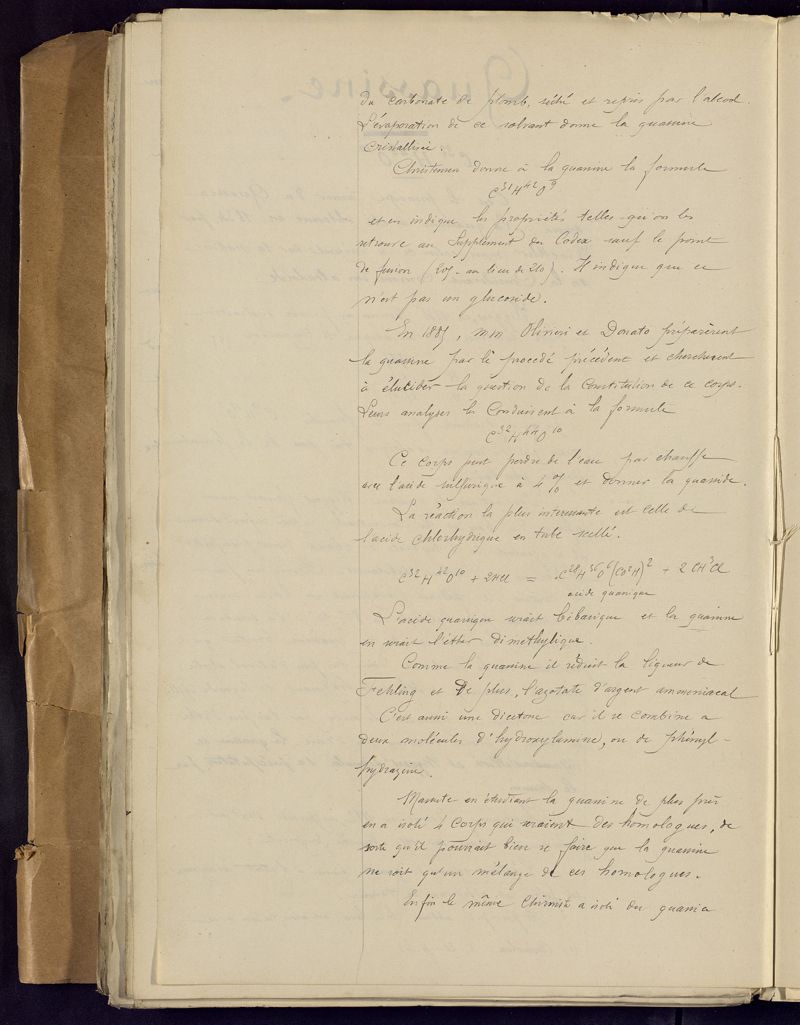 du carbonate de plomb, séché et repris par l'alcool.
L'évaporation de ce solvant donne la quassine
cristallisée.
Christensen donne à la quassine la formule
C³¹H⁴²O⁹
et en indique les propriétés telles qu'on les
retrouve au Supplément du Codex sauf le point
de fusion (205 au lieu de 210). Il indique que ce
n'est pas un glucoside.
En 1885, MM Oliveri et Donato préparèrent
la quassine par le procédé précédent et cherchèrent
à élucider la question de la Constitution de ce corps.
Leurs analyses les Conduisirent à la formule
C³²H⁴⁴O¹⁰
Ce corps peut perdre de l'eau par chauffe
avec l'acide sulfurique à 4 % et donner la quasside.
La réaction la plus intéressante est celle de
l'acide chlorhydrique en tube scellé.
C³²H⁴²O¹⁰ + 2HCl = C²⁸H³⁶O⁶(CO²H)² + 2 CH³Cl
acide quassique
L'acide quassique serait bibasique et la quassine
en serait l'éther diméthylique.
Comme la quassine il réduit la liqueur de
Fehling et de plus, l'azotate d'argent ammoniacal
C'est aussi une dicétone car il se combine a
deux molécules d'hydroxylamine, ou de phényl-
hydrazine.
Massute en étudiant la quassine de plus près
en a isolé 4 corps qui seraient des homologues, de
sorte qu'il pourrait bien se faire que la quassine
ne soit qu'un mélange de ces homologues.
Enfin le même Chimiste a isolé du quassia
Quassine.